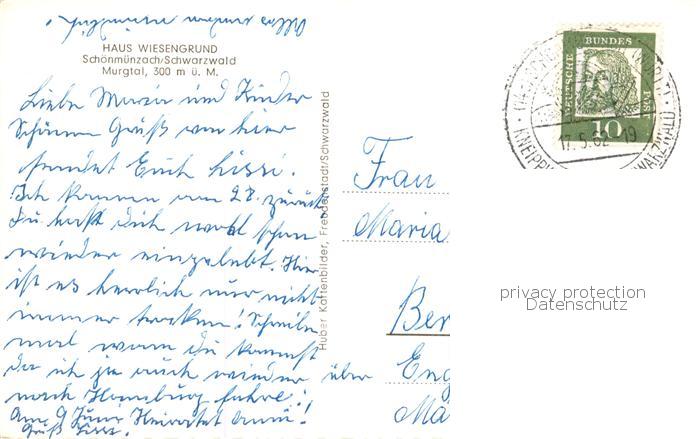 HAUS WIESENGRUND
Schönmünzach/Schwarzwald
Murgtal, 300 m ü. M.
Liebe Maria und Kinder
Schönen Gruß von hier
sendet Euch Lissi.
Ich komme am 28. zurück
Du hast Dich wohl schon
wieder eingelebt. Hier
ist es herrlich nur nicht
immer trocken! Schreibe
mal wann Du kommst
da ich ja auch wieder über
nach Hamburg fahre!
Am 9 Juni Heiratet Anni!
Gruß Lissi.
Huber Kartenbilder, Freudenstadt/Schwarzwald
DEUTSCHE BUNDESPOST
10
17.5.62-19
KNEIPP
WARZWALD
Frau
Maria
Ber
Eng
Ma
privacy protection
Datenschutz